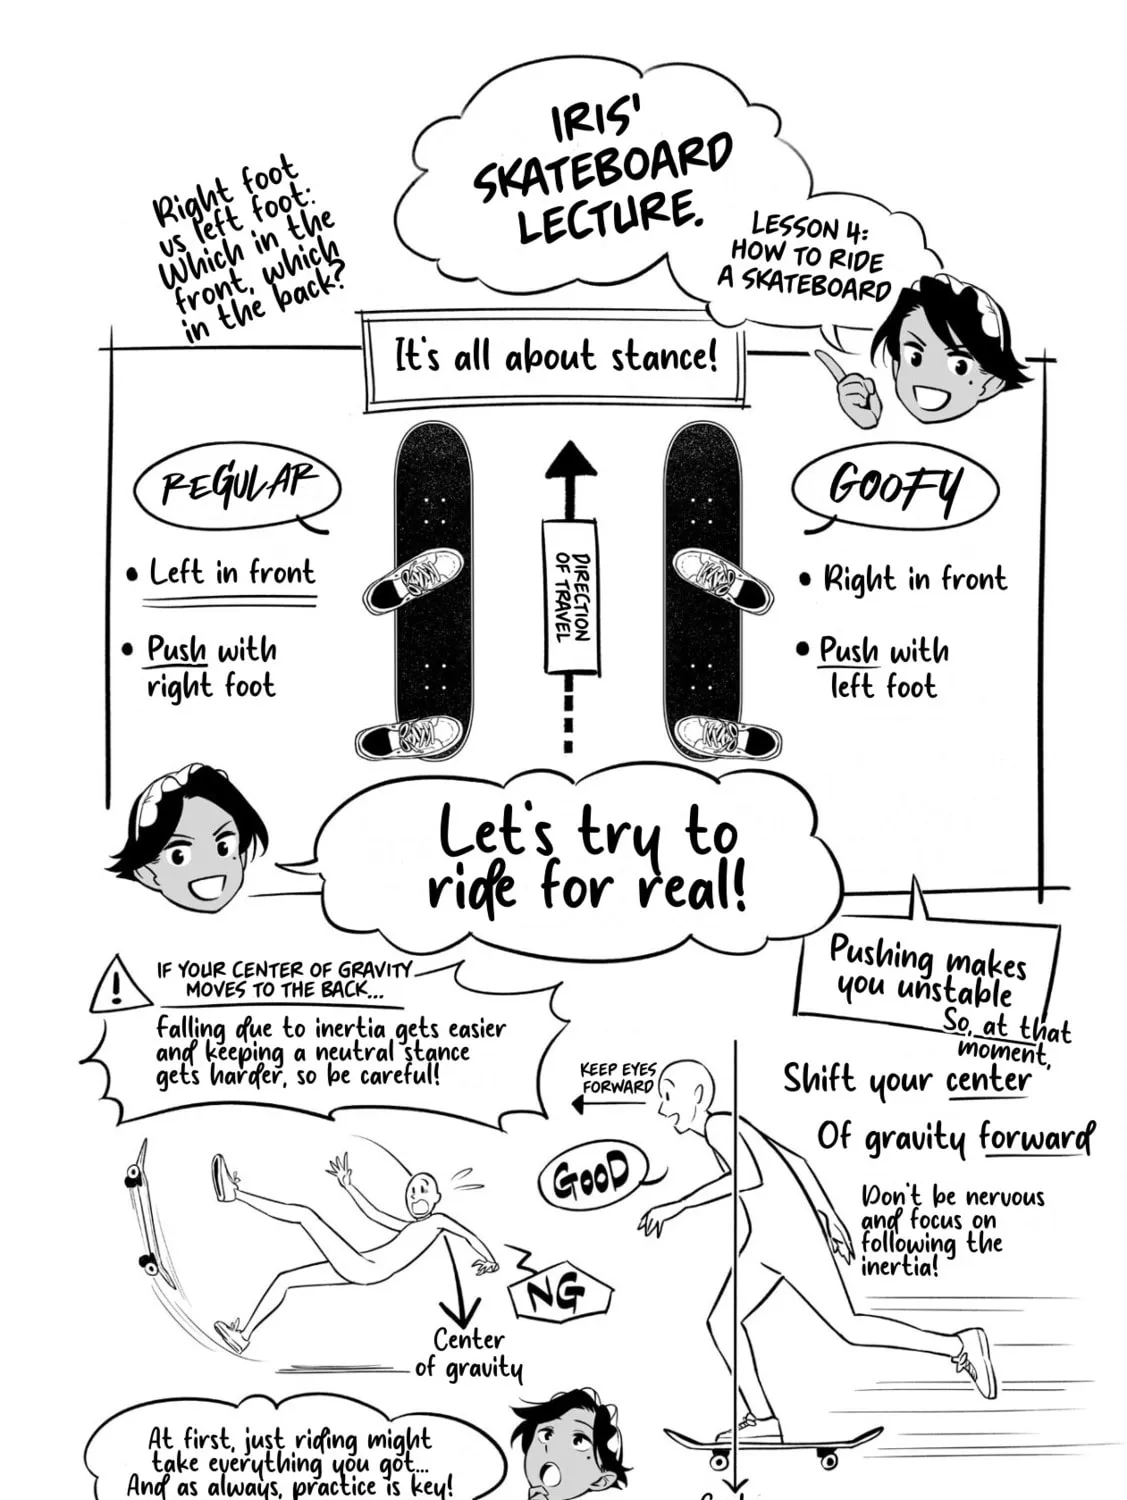 IRIS'
SKATEBOARD
LECTURE.
LESSON 4:
HOW TO RIDE
A SKATEBOARD
Right foot
vs left foot:
Which in the
front, which
in the back?
It's all about stance!
REGULAR
• Left in front
• Push with
right foot
DIRECTION
OF TRAVEL
GOOFY
• Right in front
• Push with
left foot
Let's try to
ride for real!
Pushing makes
you unstable
So, at that
moment,
Shift your center
Of gravity forward
Don't be nervous
and focus on
following the
inertia!
!
IF YOUR CENTER OF GRAVITY
MOVES TO THE BACK...
falling due to inertia gets easier
and keeping a neutral stance
gets harder, so be careful!
KEEP EYES
FORWARD
GOOD
NG
Center
of gravity
At first, just riding might
take everything you got...
And as always, practice is key!